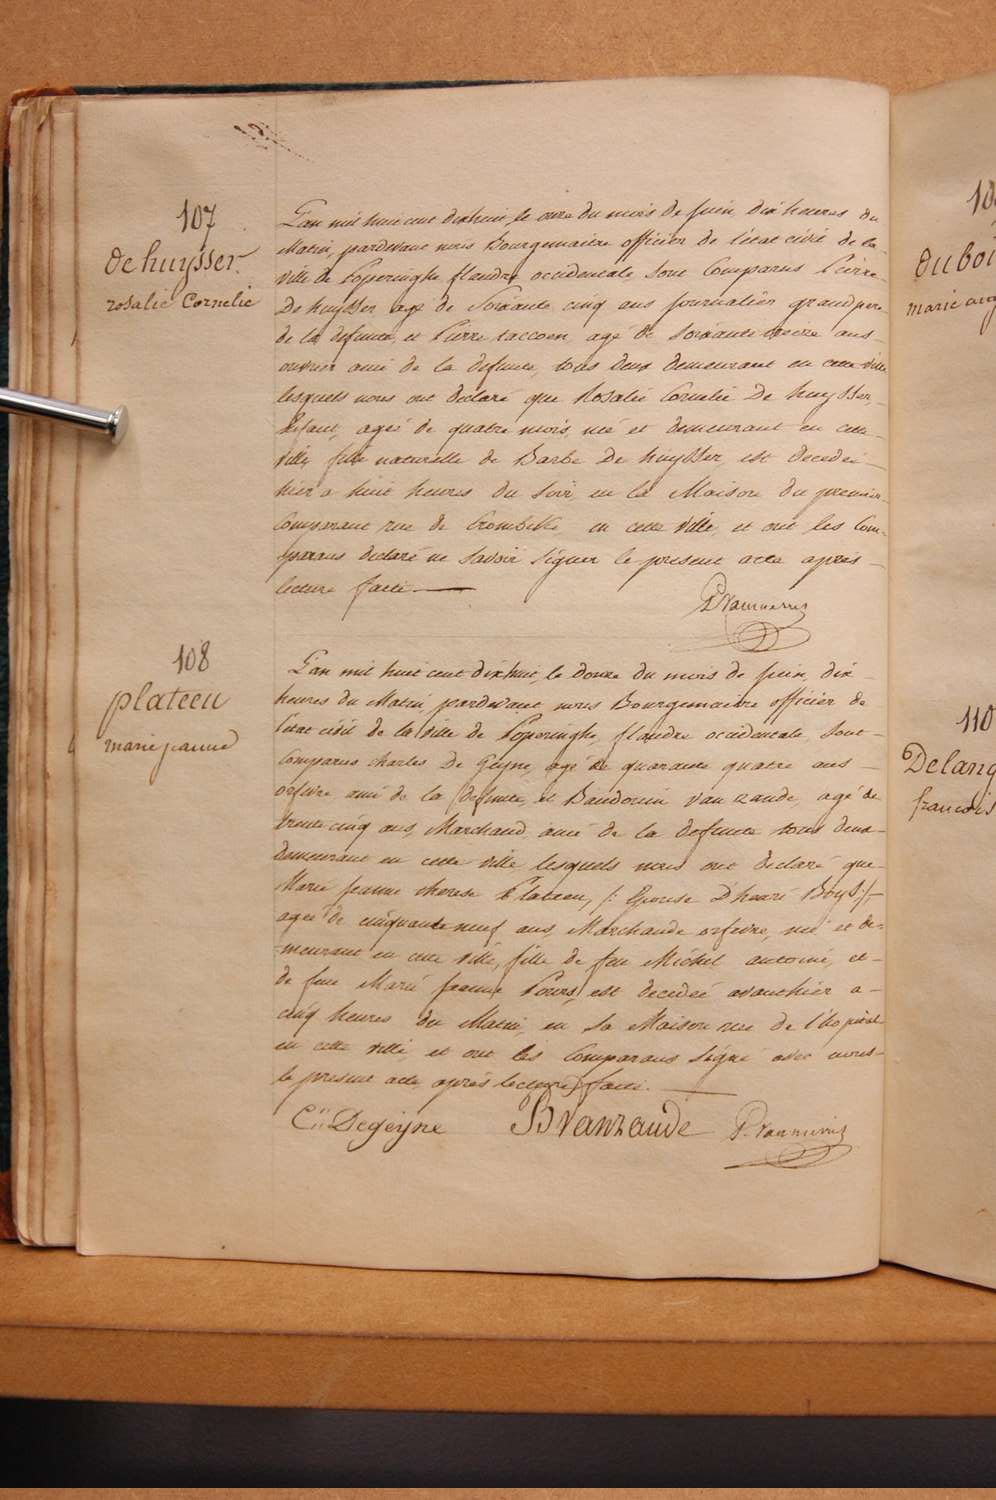 107
de huysser
rosalie Cornelie
L'an mil huit cent dixhuit, le onze du mois de Juin, dix heures du
Matin, pardevant nous Bourgemaitre officier de l'état civil de la
ville de Poperinghe flandre occidentale, sont Comparus Pierre
De huysser agé de Soixante cinq ans journalier grand pere
de la defunte, et Pierre taccoen, agé de soixante treize ans
ouvrier ami de la defunte, tous deux demeurant en cette ville
lesquels nous ont declaré que Rosalie Cornelie De huysser
Enfant, ageé de quatre mois, né et demeurant en cette
ville, fille naturelle de Barbe De huysser, est decedeé
hier a huit heures du soir, en la Maison du premier
Comparant rue de Crombeke en cette ville, et ont les Com-
parans declaré ne savoir signer le present acte aprés
lecture faite
108
plateeu
marie jeanne
L'an mil huit cent dixhuit, le douze du mois de Juin, dix
heures du Matin pardevant nous Bourgemaitre officier de
l'état civil de la ville de Poperinghe, flandre occidentale, sont
Comparus charles De Geyne, agé de quarante quatre ans
orfevre ami de la defunte, et Baudouin Van zande, agé de
trente cinq ans, Marchand, ami de la defunte tous deux
demeurant en cette ville lesquels nous ont declaré que
Marie Jeanne therese Plateeu, /: Epouse D'henri Boys :/
ageé de cinquante neuf ans, Marchande orfevre, né et de-
meurant en cette ville, fille de feu Michel antoine, et
de feue Marie Jeanne Pours, est decedeé avanthier a
cinq heures du Matin, en sa Maison rue de l'hopital
en cette ville, et ont les Comparans signé avec nous
le present acte aprés lecture faite.
Ch Degeyne BVanzande
duboi
marie aug
110
Delang
francois